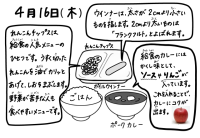 4月16日(木)
れんこんチップスは
給食の人気メニューの
ひとつです。うすく切った
れんこんを油でカリッと
あげて、しおをふります。
野菜が苦手な人も
食べやすいメニューです。
ウインナーは、太さが2cmより小さい
ものを指します。2cmより太いものは
フランクフルトとよばれます。
れんこんチップス
ウインナー
ごはん
ポークカレー
給食のカレーには
かくし味として、
ソースやりんごが
入っています。
これを入れることで、
カレーにコクが
出ます。